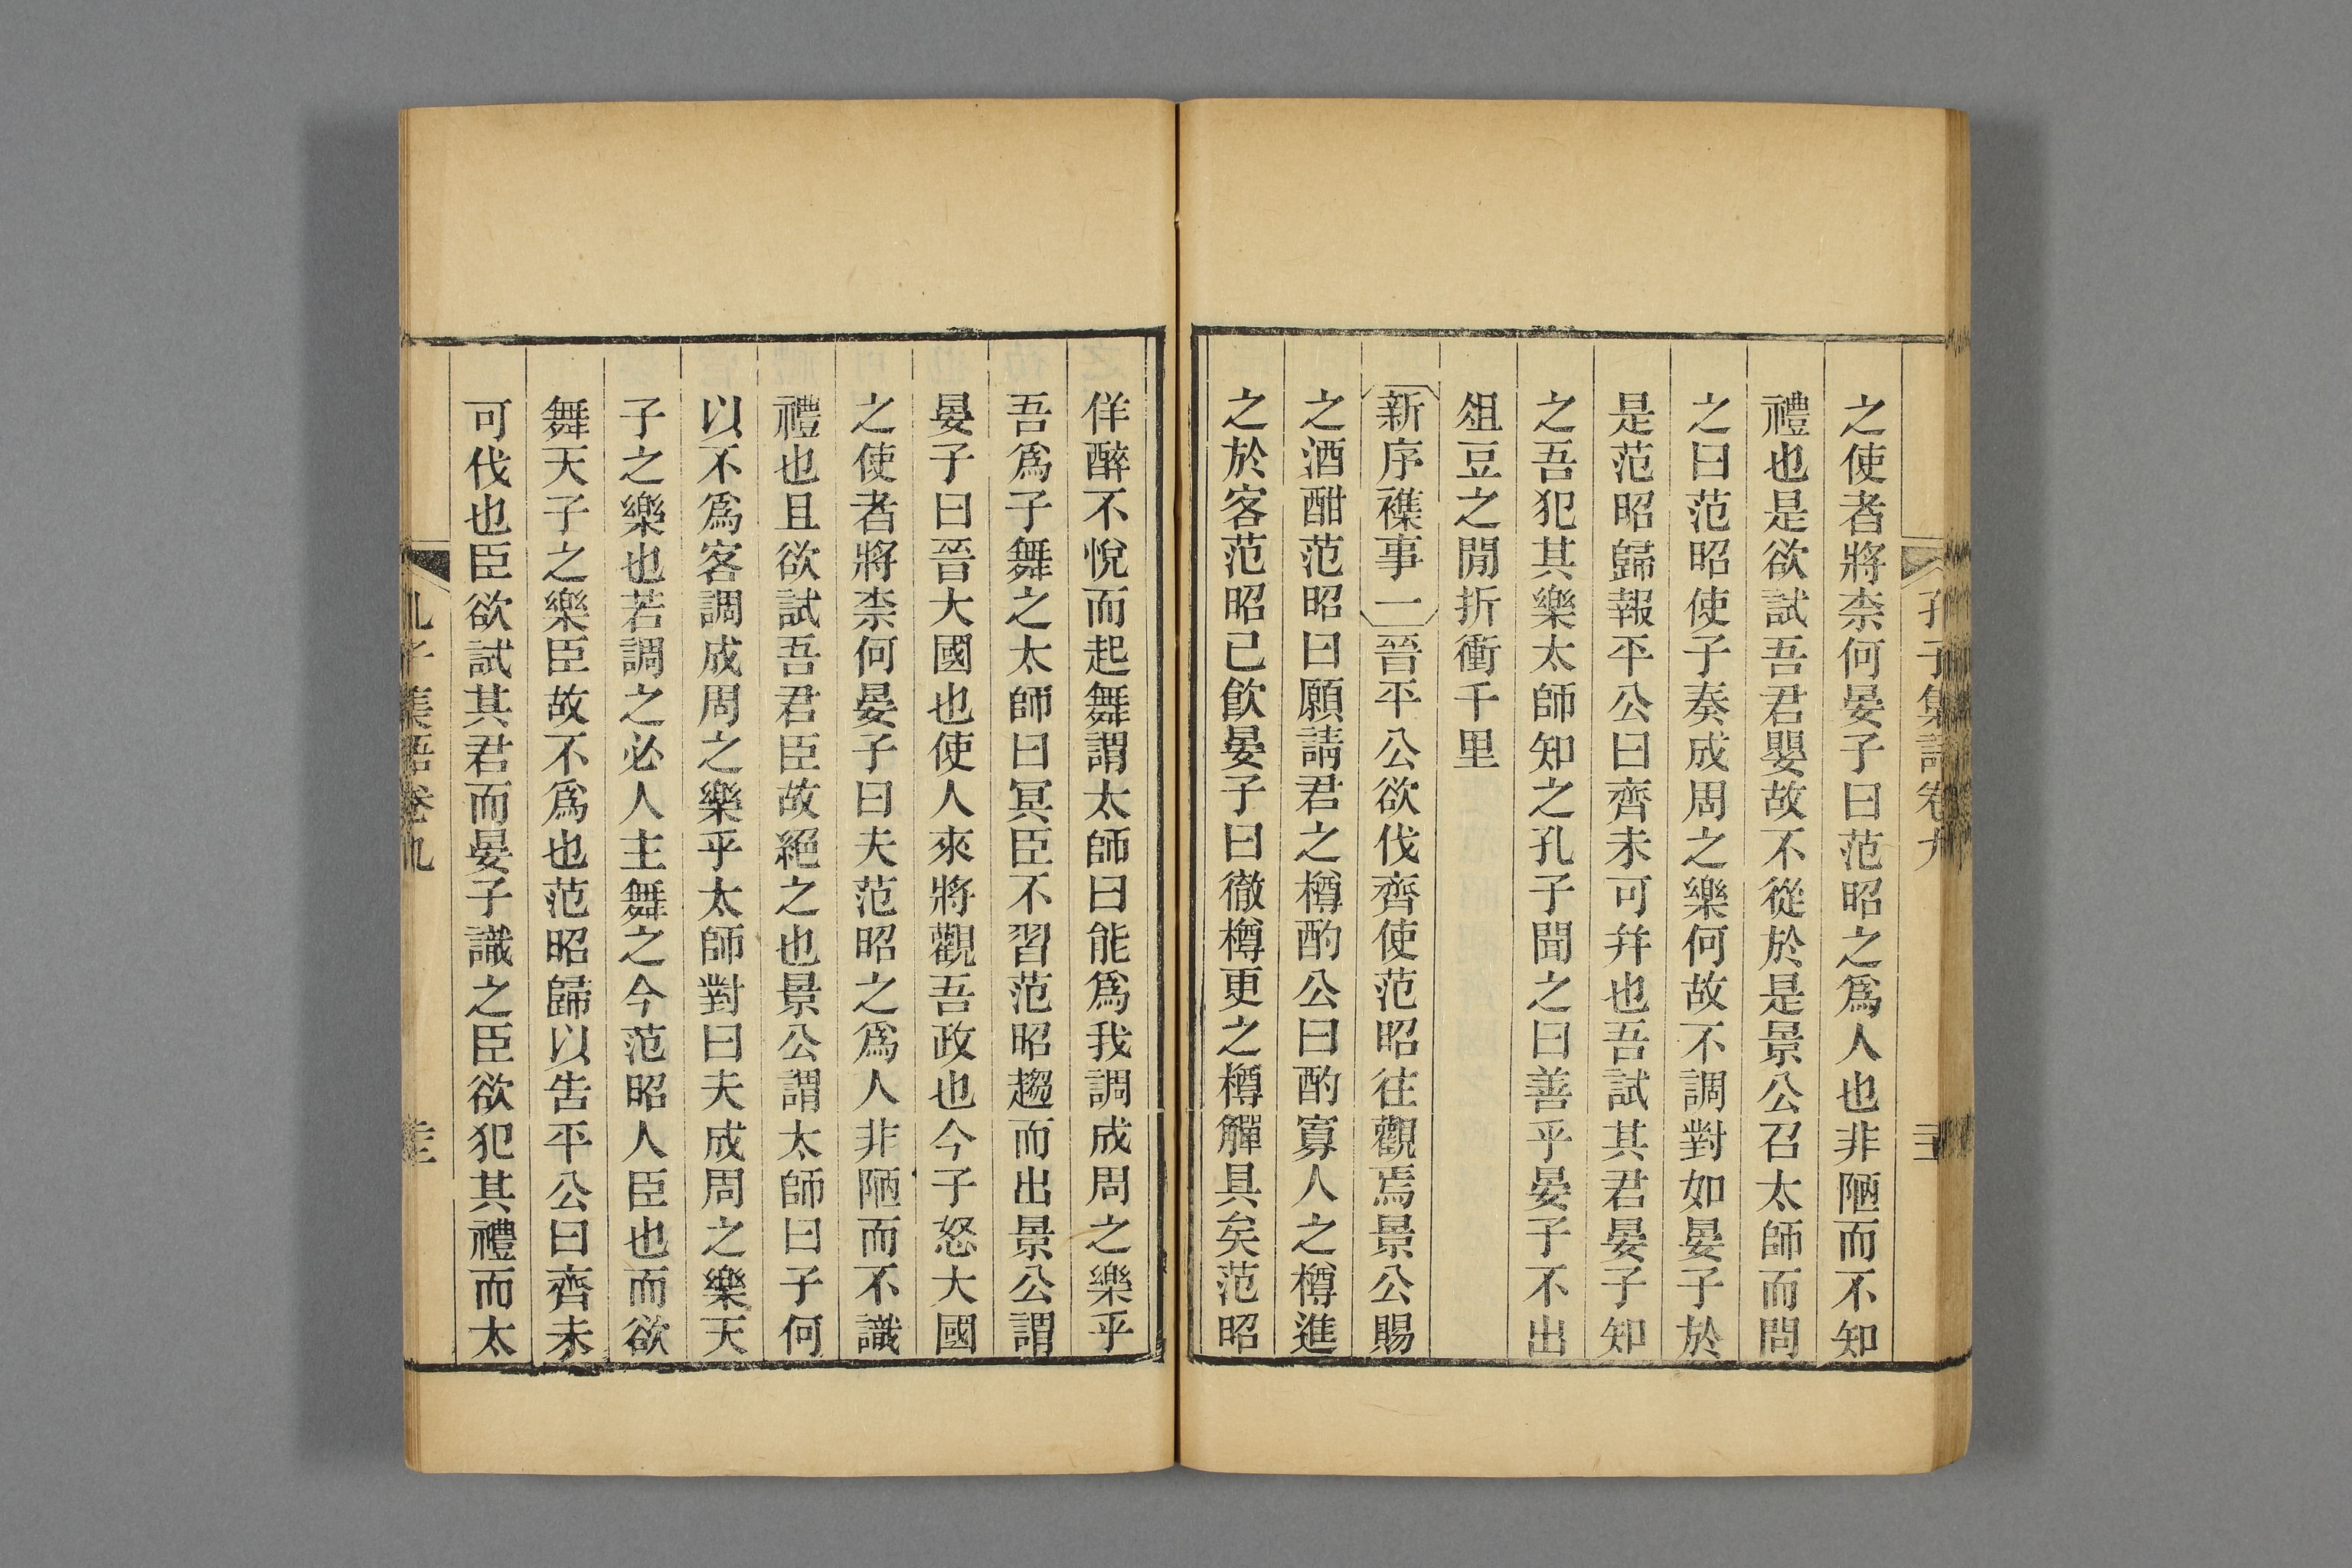 孔子集語卷九
之使者將柰何晏子曰范昭之爲人也非陋而不知
禮也是欲試吾君嬰故不從於是景公召太師而問
之曰范昭使子奏成周之樂何故不調對如晏子於
是范昭歸報平公曰齊未可幷也吾試其君晏子知
之吾犯其樂太師知之孔子聞之曰善乎晏子不出
俎豆之閒折衝千里
新序襍事一晉平公欲伐齊使范昭往觀焉景公賜
之酒酣范昭曰願請君之樽酌公曰酌寡人之樽進
之於客范昭已飮晏子曰徹樽更之樽觶具矣范昭
佯醉不悅而起舞謂太師曰能爲我調成周之樂乎
吾爲子舞之太師曰冥臣不習范昭趨而出景公謂
晏子曰晉大國也使人來將觀吾政也今子怒大國
之使者將柰何晏子曰夫范昭之爲人非陋而不識
禮也且欲試吾君臣故絕之也景公謂太師曰子何
以不爲客調成周之樂乎太師對曰夫成周之樂天
子之樂也若調之必人主舞之今范昭人臣也而欲
舞天子之樂臣故不爲也范昭歸以告平公曰齊未
可伐也臣欲試其君而晏子識之臣欲犯其禮而太
孔子集語卷九